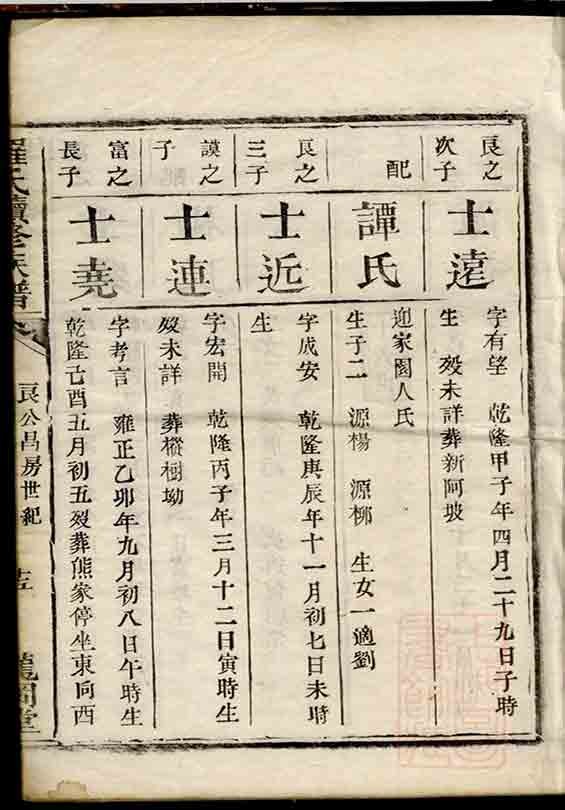 良之
次子
士遠
字有望 乾隆甲子年四月二十九日子時
生 歿未詳葬新阿坡
配
譚氏
迎家園人氏
生子二 源楊 源栁 生女一適劉
良之
三子
士近
字成安 乾隆庚辰年十一月初七日未時
生
謨之
子
士連
字宏開 乾隆丙子年三月十二日寅時生
歿未詳 葬樅樹坳
富之
長子
士堯
字考言 雍正乙卯年九月初八日午時生
乾隆己酉五月初五歿葬熊家停坐東向西
羅氏續修族譜
良公昌房世紀